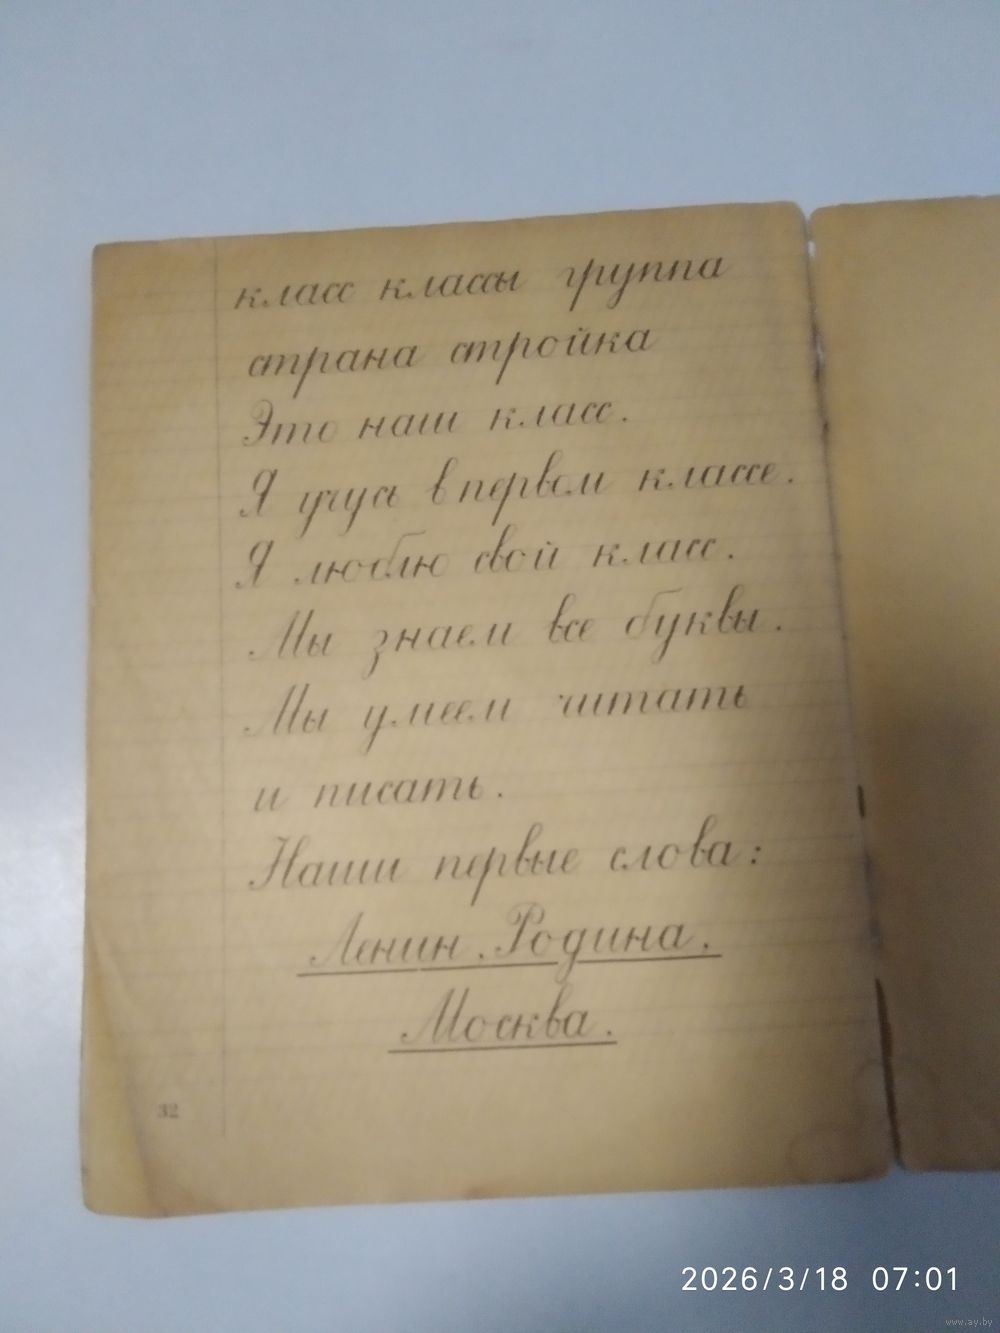 класс классы группа
страна стройка
Это наш класс.
Я учусь в первом классе.
Я люблю свой класс.
Мы знаем все буквы.
Мы умеем читать
и писать.
Наши первые слова:
Ленин. Родина.
Москва.
32
2026/3/18 07:01
www.ay.by